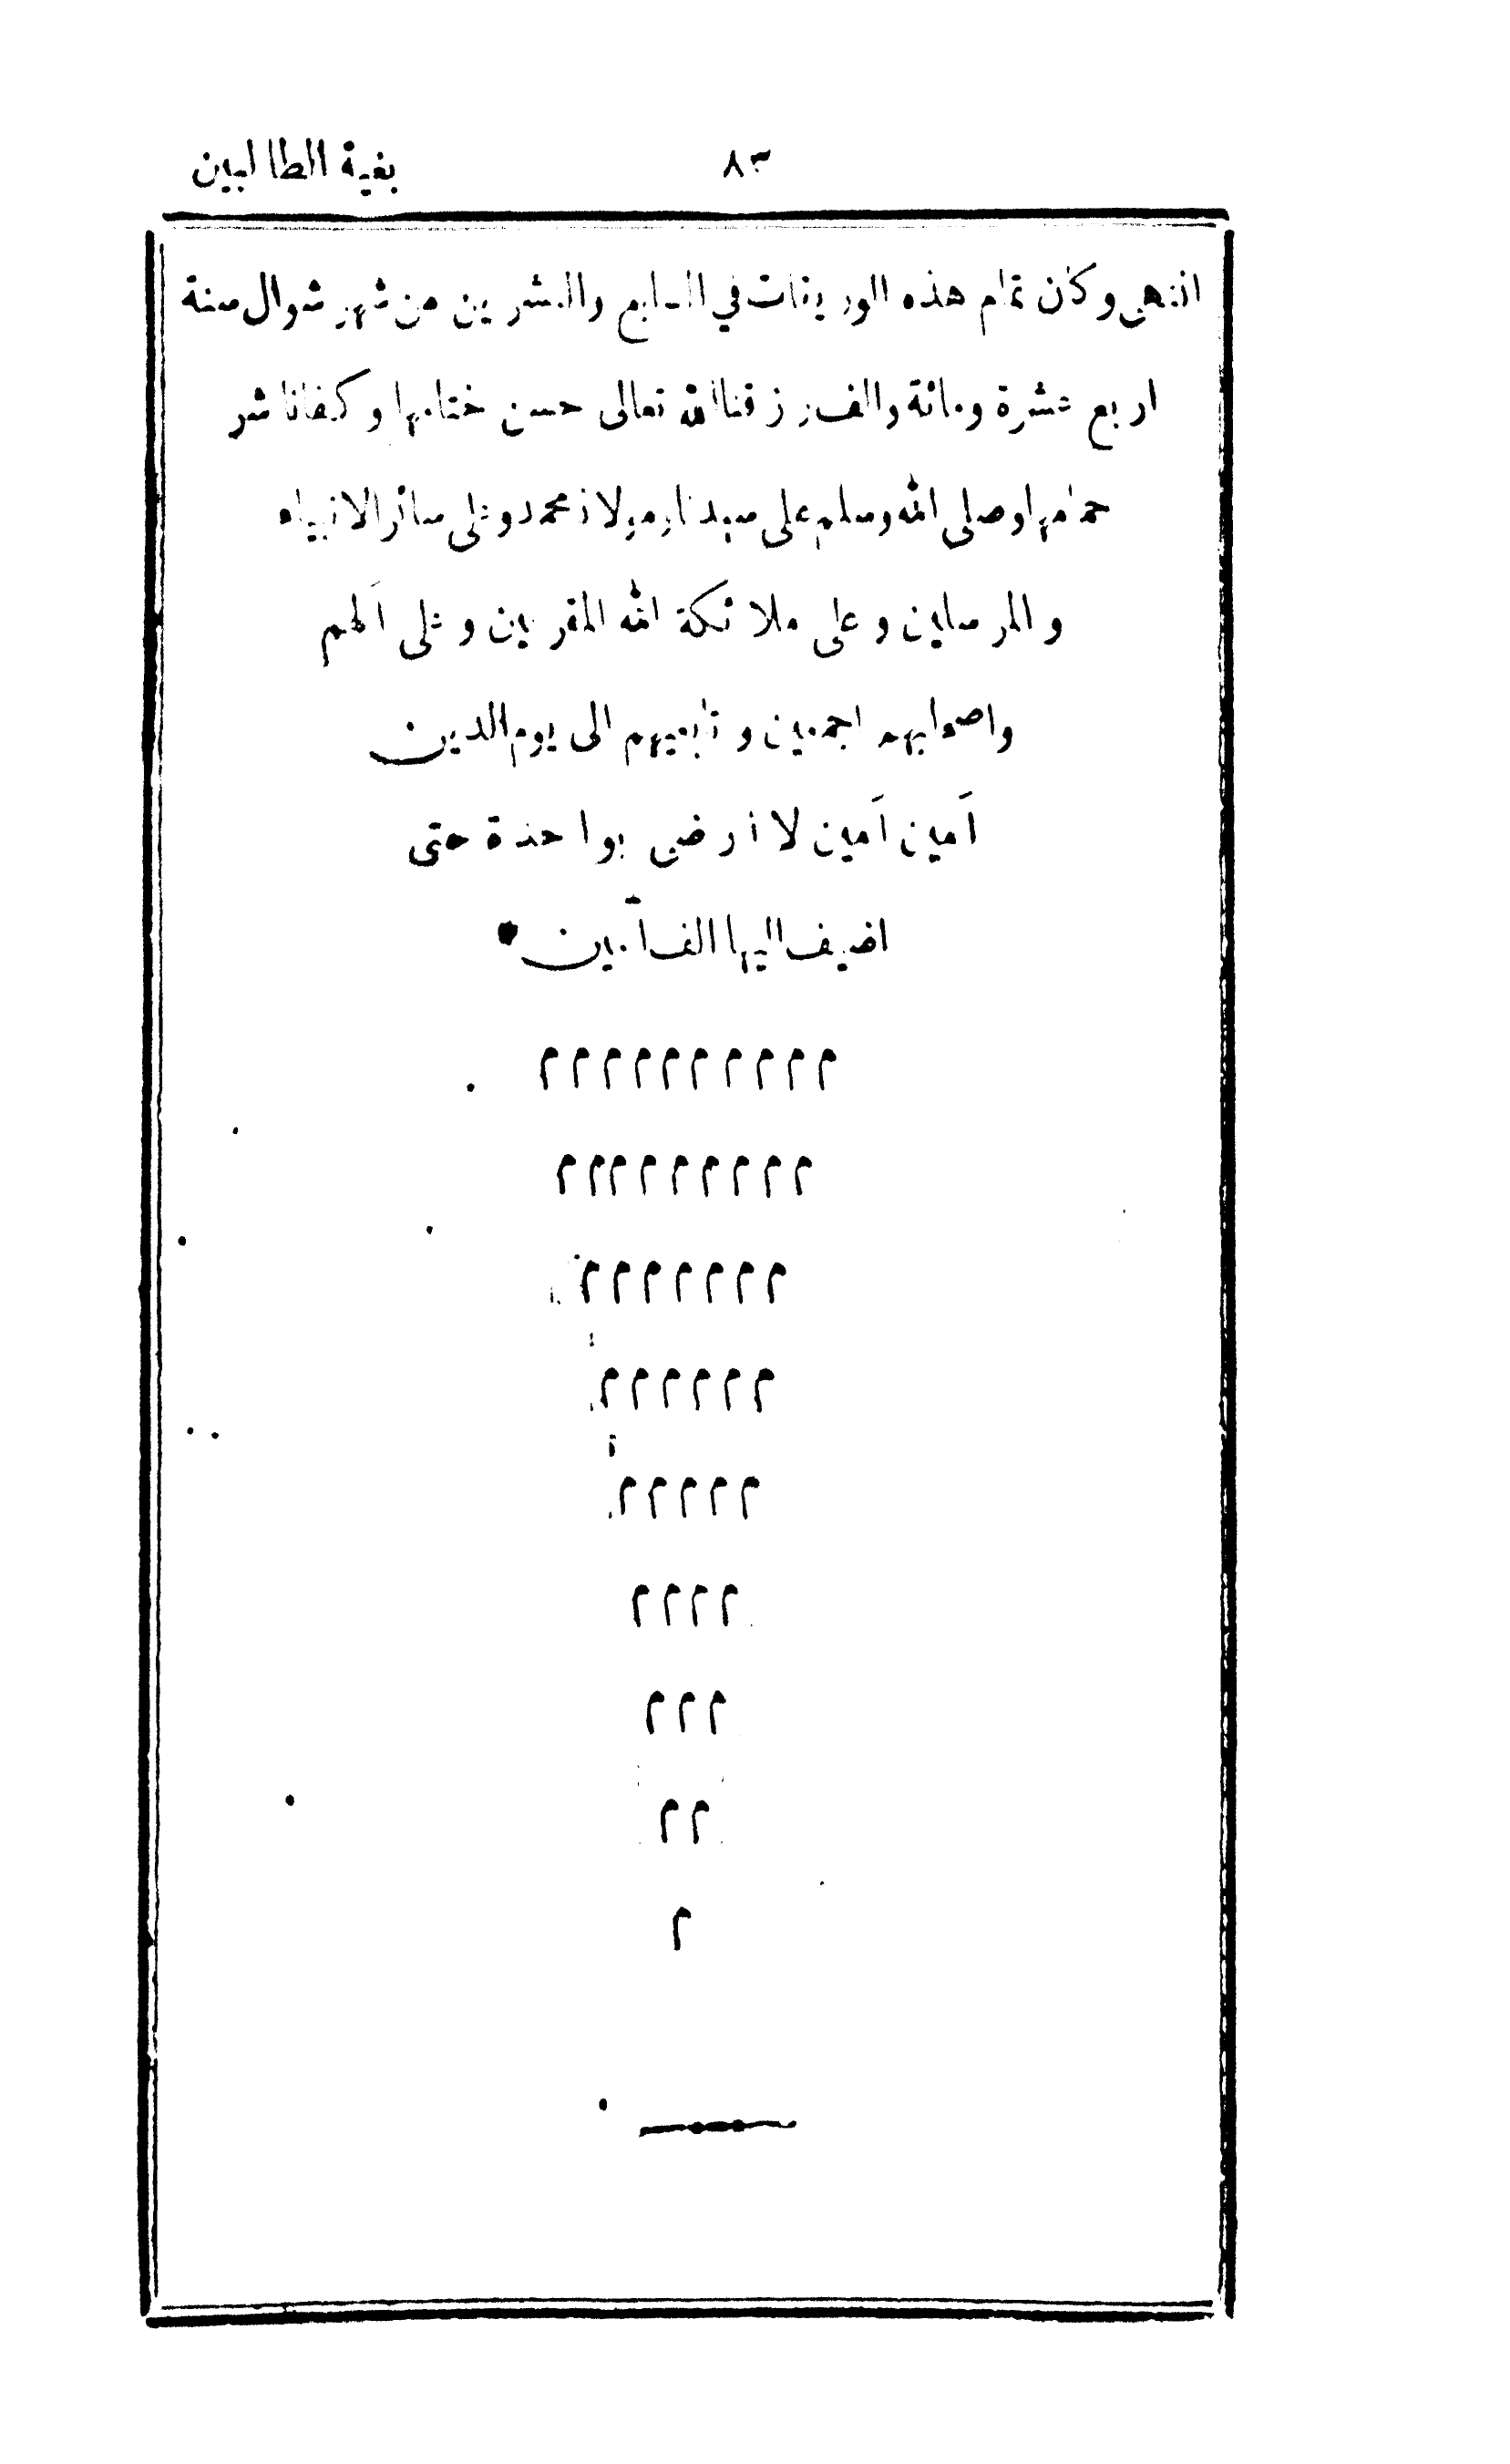 ٨٣ بغية الطالبين
انتهى وكان تمام هذه الوريقات في السابع والعشرين من شهر شوال سنة
اربع عشرة ومائة والف رزقنا الله تعالى حسن ختامها وكفانا شر
حمامها وصلى الله وسلم على سيدنا ومولانا محمد وعلى سائر الانبياء
والمرسلين وعلى ملائكة الله المقربين وعلى آلهم
واصحابهم اجمعين وتابعيهم الى يوم الدين
آمين آمين لا ارضى بواحدة حتى
اضيف اليها الف آمين
م م م م م م م م م م
م م م م م م م م م
م م م م م م م
م م م م م م
م م م م م
م م م م
م م م
م م
م